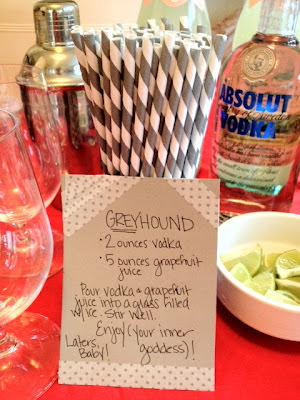 ABSOLUT
VODKA
GREYHOUND
• 2 ounces vodka
• 5 ounces grapefruit
juice
Pour vodka & grapefruit
juice into a glass filled
w/ice. Stir Well.
Enjoy (your inner
goddess)!
Laters,
Baby!